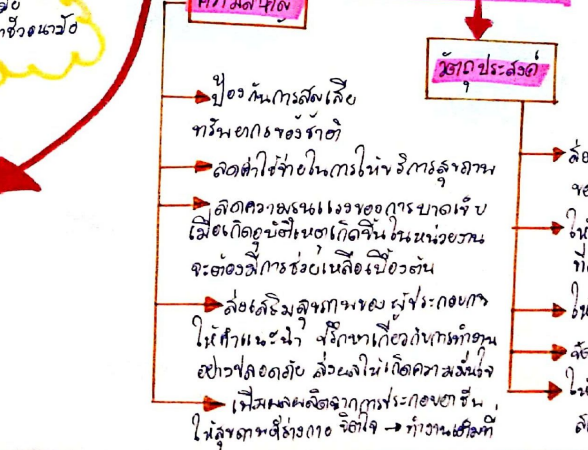 ความสำคัญ
ป้องกันการสูญเสีย
ทรัพยากรของชาติ
ลดค่าใช้จ่ายในการให้บริการสุขภาพ
ลดความรุนแรงของการบาดเจ็บ
เมื่อเกิดอุบัติเหตุเกิดขึ้นในหน่วยงาน
จะต้องมีการช่วยเหลือเบื้องต้น
ส่งเสริมสุขภาพของผู้ประกอบการ
ให้คำแนะนำ ปรึกษาเกี่ยวกับการทำงาน
อย่างปลอดภัย ส่งผลให้เกิดความมั่นใจ
เพิ่มผลผลิตจากการประกอบอาชีพ
ให้สุขภาพดีร่างกาย จิตใจ → ทำงานเต็มที่
วัตถุประสงค์
ส่ง
ขอ
ให้
ที่
ใน
จัด
ให้